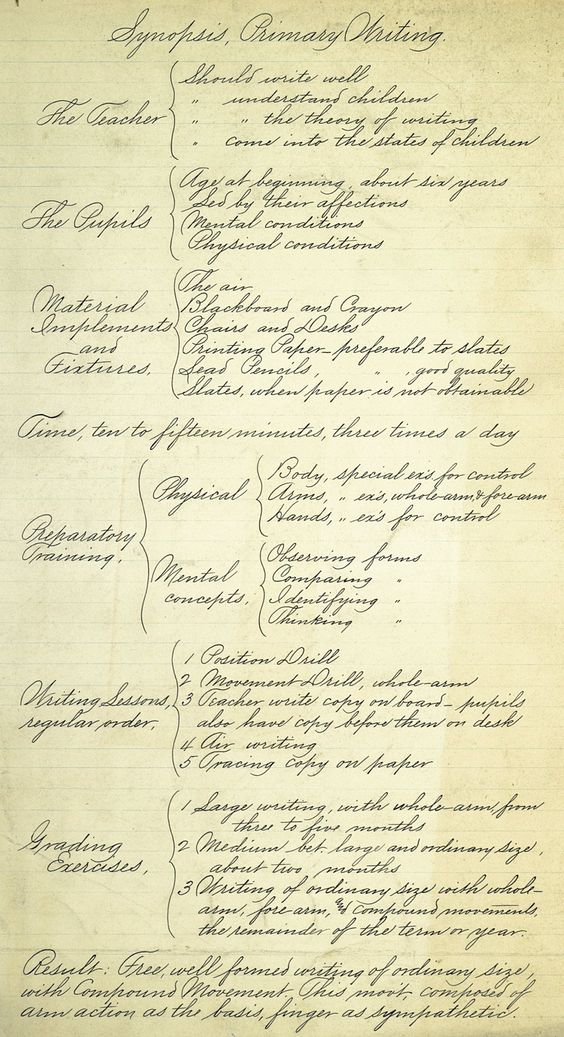 Synopsis, Primary Writing.
The Teacher
Should write well
" understand children
" " the theory of writing
" come into the states of children
The Pupils
Age at beginning, about six years
Led by their affections
Mental conditions
Physical conditions
Material
Implements
and
Fixtures,
The air
Blackboard and Crayon
Chairs and Desks
Printing Paper - preferable to slates
Lead Pencils, " , good quality
Slates, when paper is not obtainable
Time, ten to fifteen minutes, three times a day
Preparatory
Training,
Physical
Body, special ex's for control
Arms, " ex's, whole-arm, & fore-arm
Hands, " ex's for control
Mental
concepts,
Observing forms
Comparing "
Identifying "
Thinking "
Writing Lessons,
regular order,
1 Position Drill
2 Movement Drill, whole-arm
3 Teacher write copy on board - pupils
also have copy before them on desk
4 Air writing
5 Tracing copy on paper
Grading
Exercises,
1 Large writing, with whole-arm, from
three to five months
2 Medium bet. large and ordinary size,
about two months
3 Writing of ordinary size with whole-
arm, fore-arm, and compound movements,
the remainder of the term or year.
Result: Free, well formed writing of ordinary size,
with Compound Movement. This mov't composed of
arm action as the basis, finger as sympathetic.